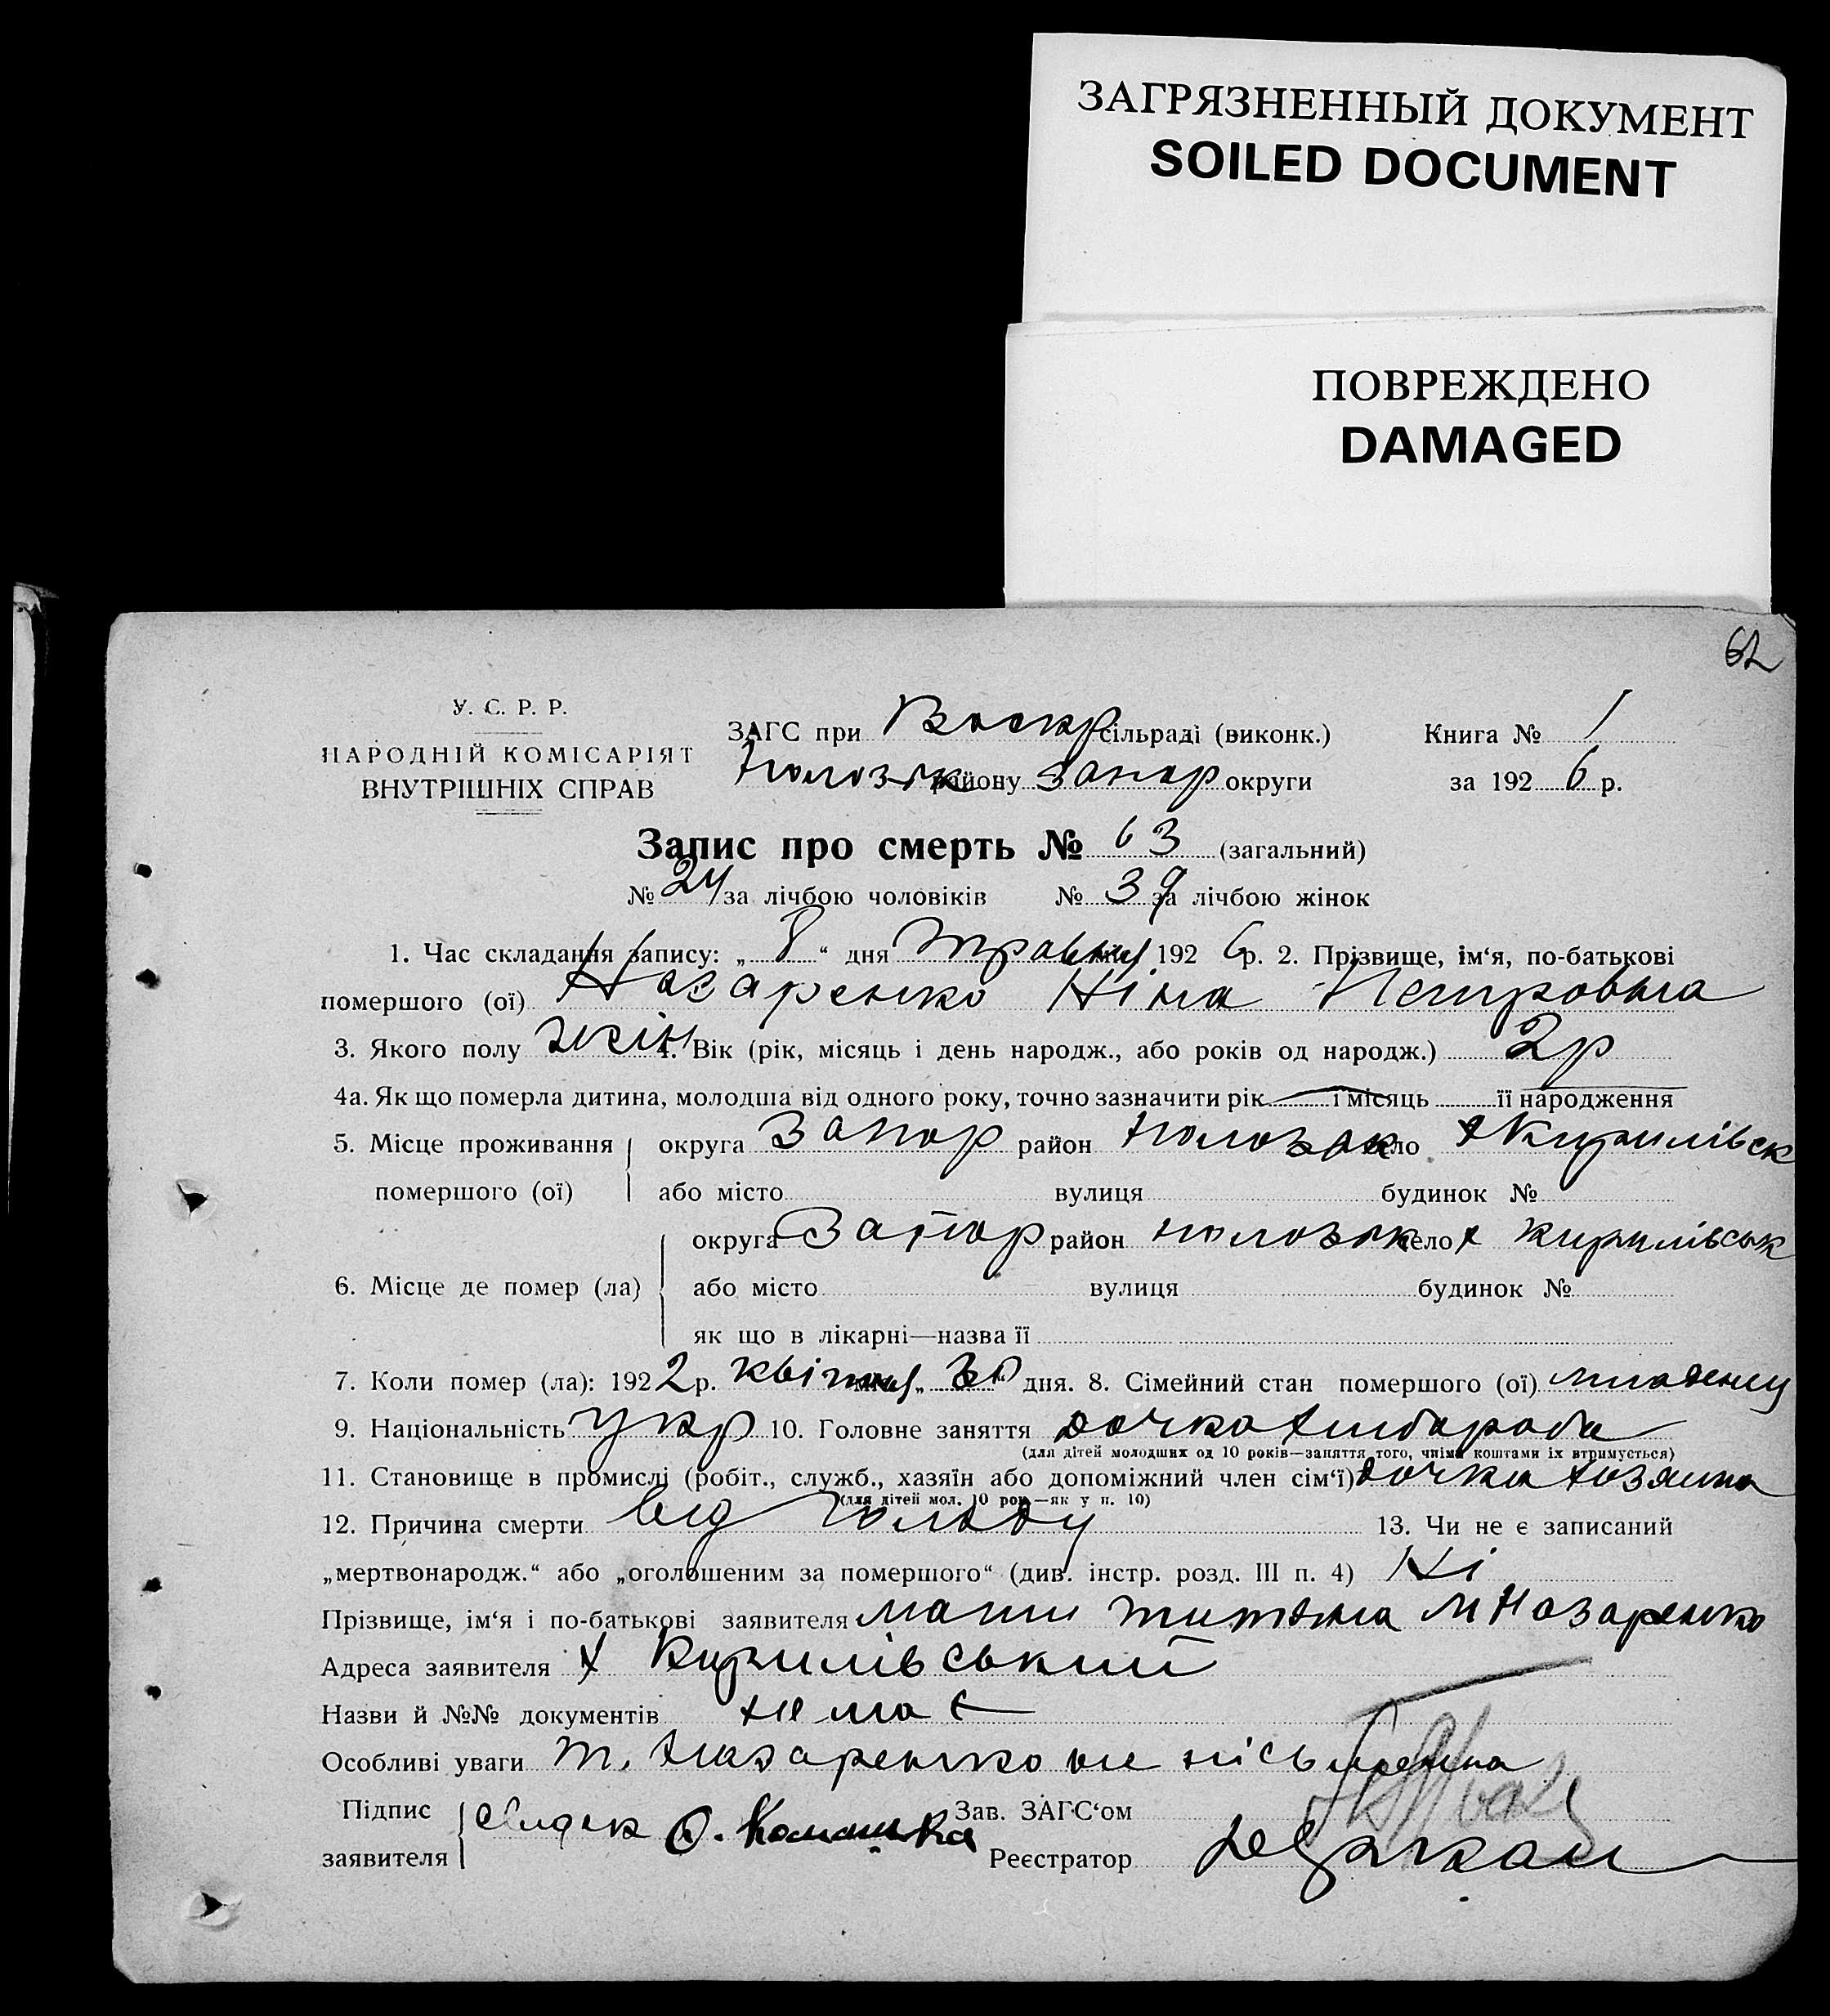 ЗАГРЯЗНЕННЫЙ ДОКУМЕНТ
SOILED DOCUMENT
ПОВРЕЖДЕНО
DAMAGED
62
У. С. Р. Р.
НАРОДНІЙ КОМІСАРІЯТ
ВНУТРІШНІХ СПРАВ
ЗАГС при Воскр сільраді (виконк.) Книга № 1
району Запор округи за 1926 р.
Запис про смерть № 63 (загальний)
№ 24 за лічбою чоловіків № 39 за лічбою жінок
1. Час складання запису: „ 8 “ дня травня 1926 р. 2. Прізвище, ім‘я, по-батькові
помершого (ої) Назаренко Ніна Петровна
3. Якого полу жін 4. Вік (рік, місяць і день народж., або років од народж.) 2р
4а. Як що померла дитина, молодша від одного року, точно зазначити рік — і місяць її народження
5. Місце проживання помершого (ої) округа Запор район Пологзьк село х Кирилівськ
або місто вулиця будинок №
6. Місце де помер (ла) округа Запор район село х Кирилівськ
або місто вулиця будинок №
як що в лікарні—назва її
7. Коли помер (ла): 1922 р. квітня „ 30 “ дня. 8. Сімейний стан помершого (ої)
9. Національність Укр 10. Головне заняття дочка хлибороба
(для дітей молодших од 10 років—заняття того, чиїми коштами їх втримується)
11. Становище в промислі (робіт., служб., хазяїн або допоміжний член сім‘ї) дочка хозяина
(для дітей мол. 10 рок.—як у п. 10)
12. Причина смерти від голоду 13. Чи не є записаний
„мертвонародж.“ або „оголошеним за помершого“ (див. інстр. розд. III п. 4) Ні
Прізвище, ім‘я і по-батькові заявителя мати М Назаренко
Адреса заявителя х Кирилівський
Назви й №№ документів немає
Особливі уваги т. Назаренко не письменна
Підпис заявителя Свідок О. Зав. ЗАГС‘ом
Реєстратор